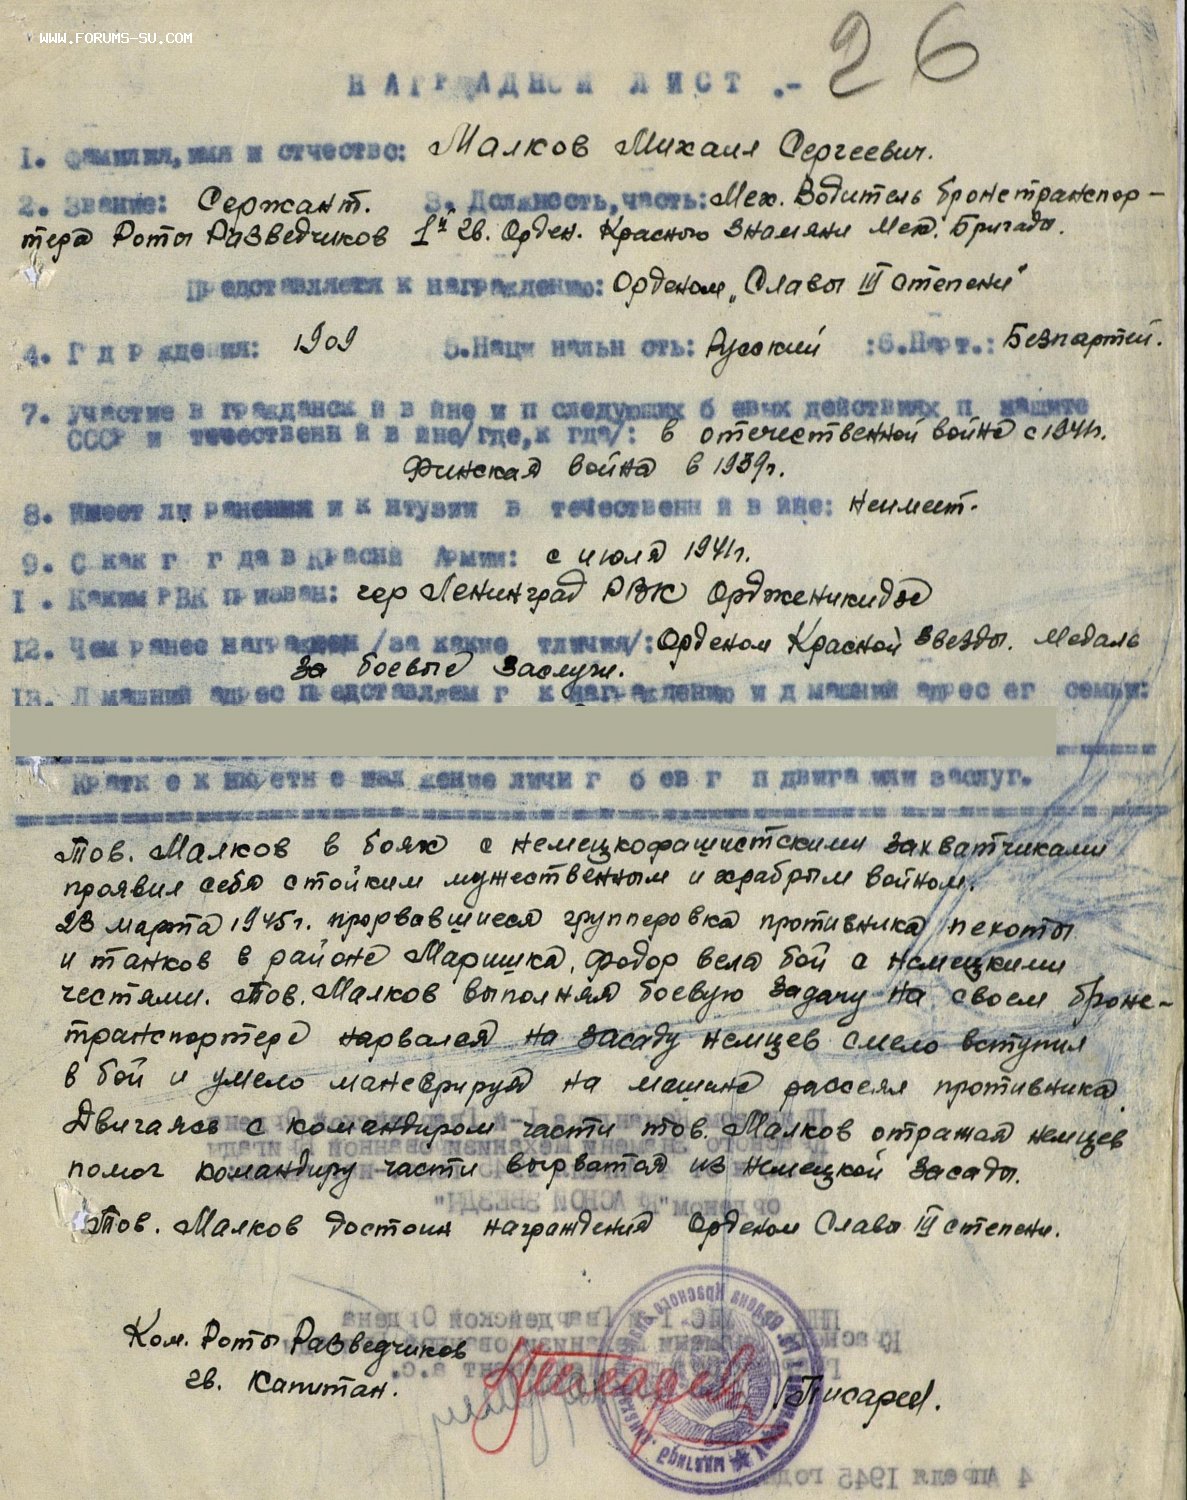 WWW.FORUMS-SU.COM
26
НАГРАДНОЙ ЛИСТ .-
1. Фамилия, имя и отчество: Малков Михаил Сергеевич.
2. Звание: Сержант. 3. Должность, часть: Мех. Водитель бронетранспор-
тера Роты Разведчиков 1й гв. Орден. Красного Знамяни Мех. Бригады.
Представляется к награждению: Орденом „Славы III степени"
4. Г д р ждения: 1909 5. Наци нальн сть: Русский :6. Парт.: Безпартей.
7. Участие в гражданск й в йне и п следующих б евых действиях п защите
СССР и течественн й в йне/где, к гда/: в отечественной войне с 1941г.
Финская война в 1939г.
8. Имеет ли ранения и к нтузии в течественн й в йне: неимеет.
9. С как г г да в Красн й Армии: с июля 1941г.
1 . Каким РВК призван: гор Ленинград РВК Ордженикидзе
12. Чем ранее награжден /за какие тличия/: Орденом Красной звезды. Медаль
за боевые заслуги.
13. Д машний адрес представляем г к награждению и д машний адрес ег семьи:
Кратк е к нкретн е изл жение личн г б ев г п двига или заслуг.
Тов. Малков в боях с немецкофашистскими захватчиками
проявил себя стойким мужественным и храбрым войном.
23 марта 1945г. прорвавшиеся групперовка противника пехоты
и танков в районе Маришка, Фодор вела бой с немецкими
честями. Тов. Малков выполняя боевую задачу на своем броне-
транспортере нарвался на засаду немцев смело вступил
в бой и умело маневрируя на машине рассеял противника.
Двигаясь с командиром части тов. Малков отражая немцев
помог командиру части вырватся из немецкой засады.
Тов. Малков достоин награждения Орденом Славы III степени.
Ком. Роты Разведчиков
гв. капитан. /Писарев/.
4 Апреля 1945 года